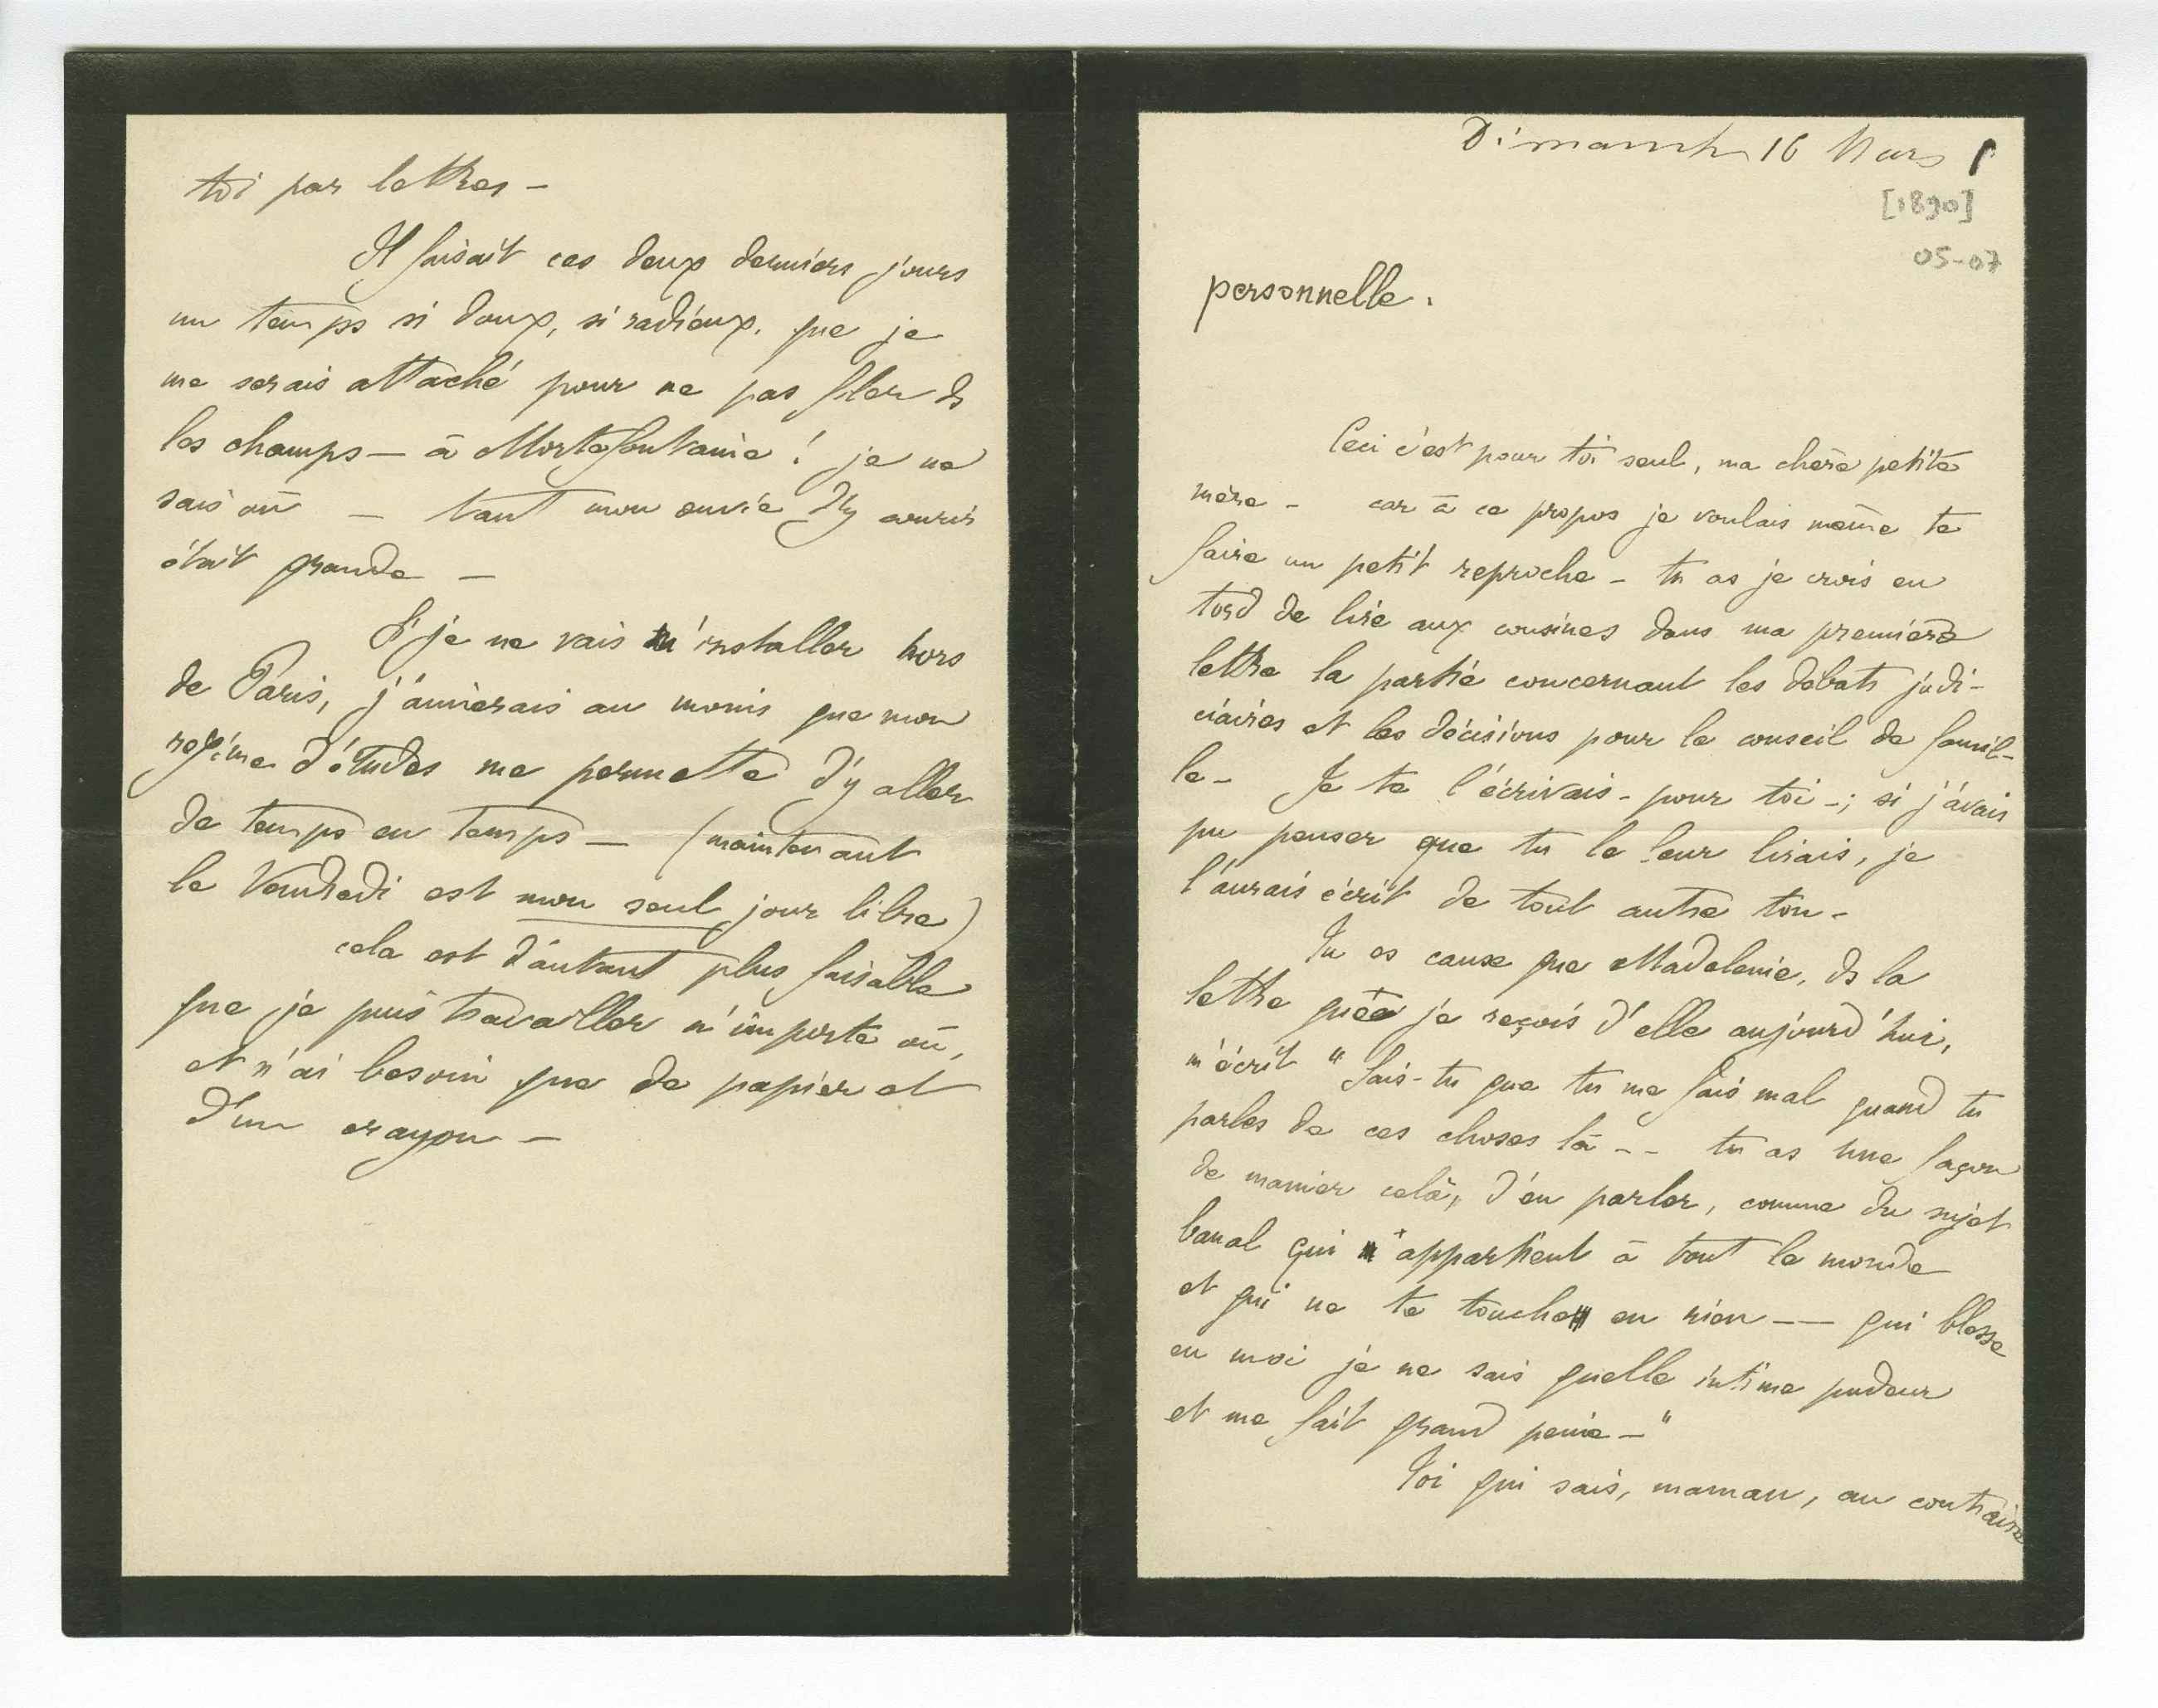 toi par lettres –
Il faisait ces deux derniers jours
un temps si doux, si radieux, que je
me serais attaché pour ne pas filer ds
les champs – à Mortefontaine ! je ne
sais où – tant mon envie d'y courir
était grande –
Si je ne vais m'installer hors
de Paris, j'aimerais au moins que mon
régime d'études me permette d'y aller
de temps en temps – (maintenant
le Vendredi est mon seul jour libre)
cela est d'autant plus faisable
que je puis travailler n'importe où,
et n'ai besoin que de papier et
d'un crayon –
Dimanche 16 Mars
[1890]
05-07
personnelle.
Ceci c'est pour toi seul, ma chère petite
mère – car à ce propos je voulais même te
faire un petit reproche – tu as je crois eu
tord de lire aux cousines dans ma première
lettre la partie concernant les débats judi-
ciaires et les décisions pour le conseil de famil-
le – Je te l'écrivais – pour toi –; si j'avais
pu penser que tu le leur lirais, je
l'aurais écrit de tout autre ton –
Tu es cause que Madeleine, ds la
lettre que je reçois d'elle aujourd'hui,
m'écrit " Sais-tu que tu me fais mal quand tu
parles de ces choses là – – tu as une façon
de manier cela, d'en parler, comme du sujet
banal qui appartient à tout le monde
et qui ne te touche en rien – – qui blesse
en moi je ne sais quelle intime pudeur
et me fait grand peine – "
Toi qui sais, maman, au contraire